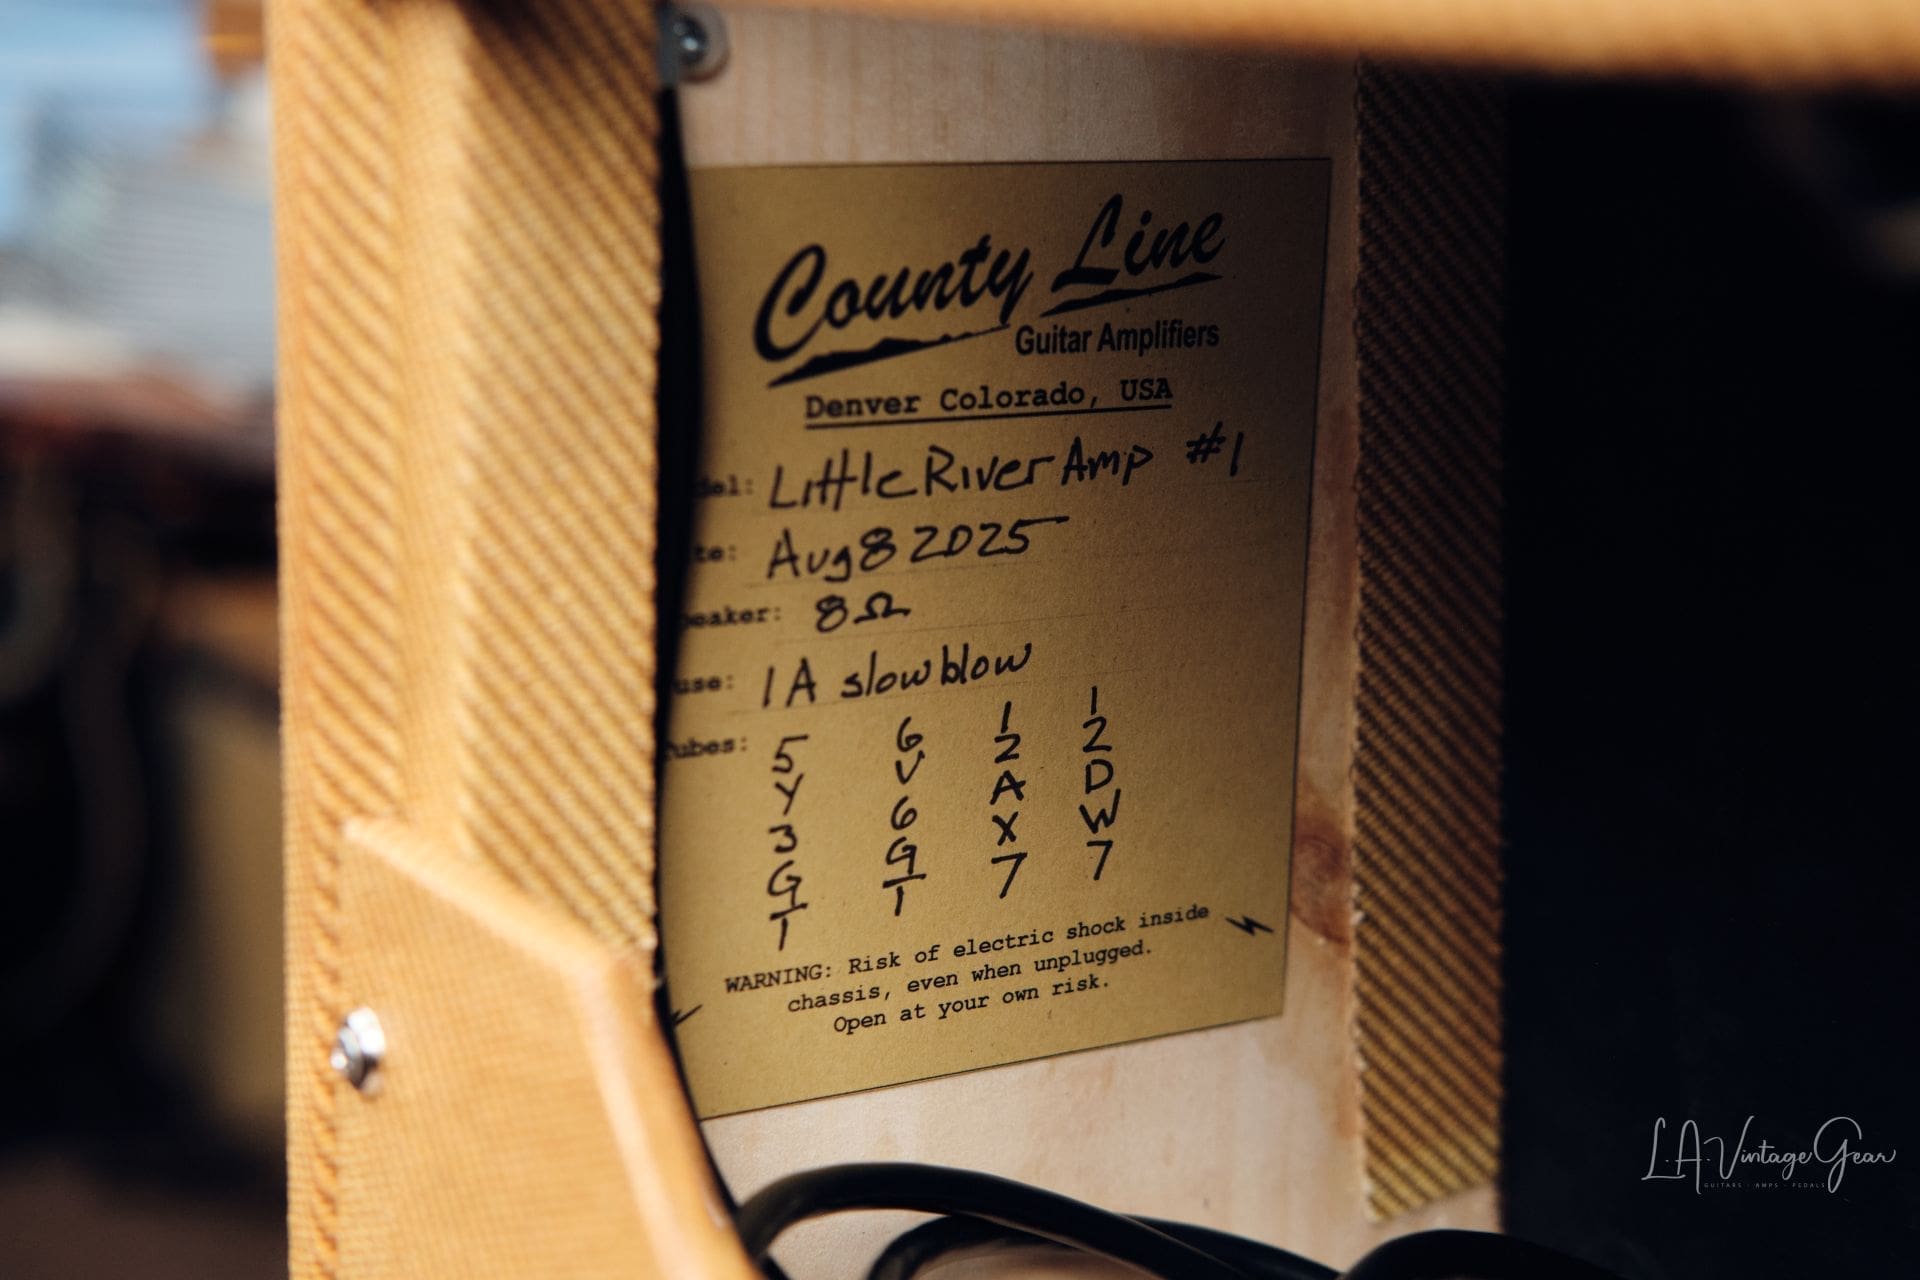 County Line
Guitar Amplifiers
Denver Colorado, USA
del: Little River Amp #1
te: Aug 8 2025
peaker: 8Ω
use: 1A slow blow
Tubes: 5Y3GT 6V6GT 12AX7 12DW7
WARNING: Risk of electric shock inside
chassis, even when unplugged.
Open at your own risk.
L.A. Vintage Gear
GUITARS - AMPS - PEDALS